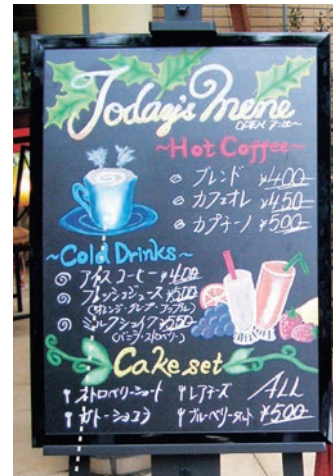 Today's Mene
OPEN 7:00~
~Hot Coffee~
ブレンド ¥400
カフェオレ ¥450
カプチーノ ¥500
~Cold Drinks~
アイスコーヒー ¥400
フレッシュジュース ¥500
(オレンジ・グレープ・アップル)
ミルクシェイク ¥550
(バニラ・ストロベリー)
Cake set
ストロベリーショート レアチーズ ALL
ガトーショコラ ブルーベリータルト ¥500